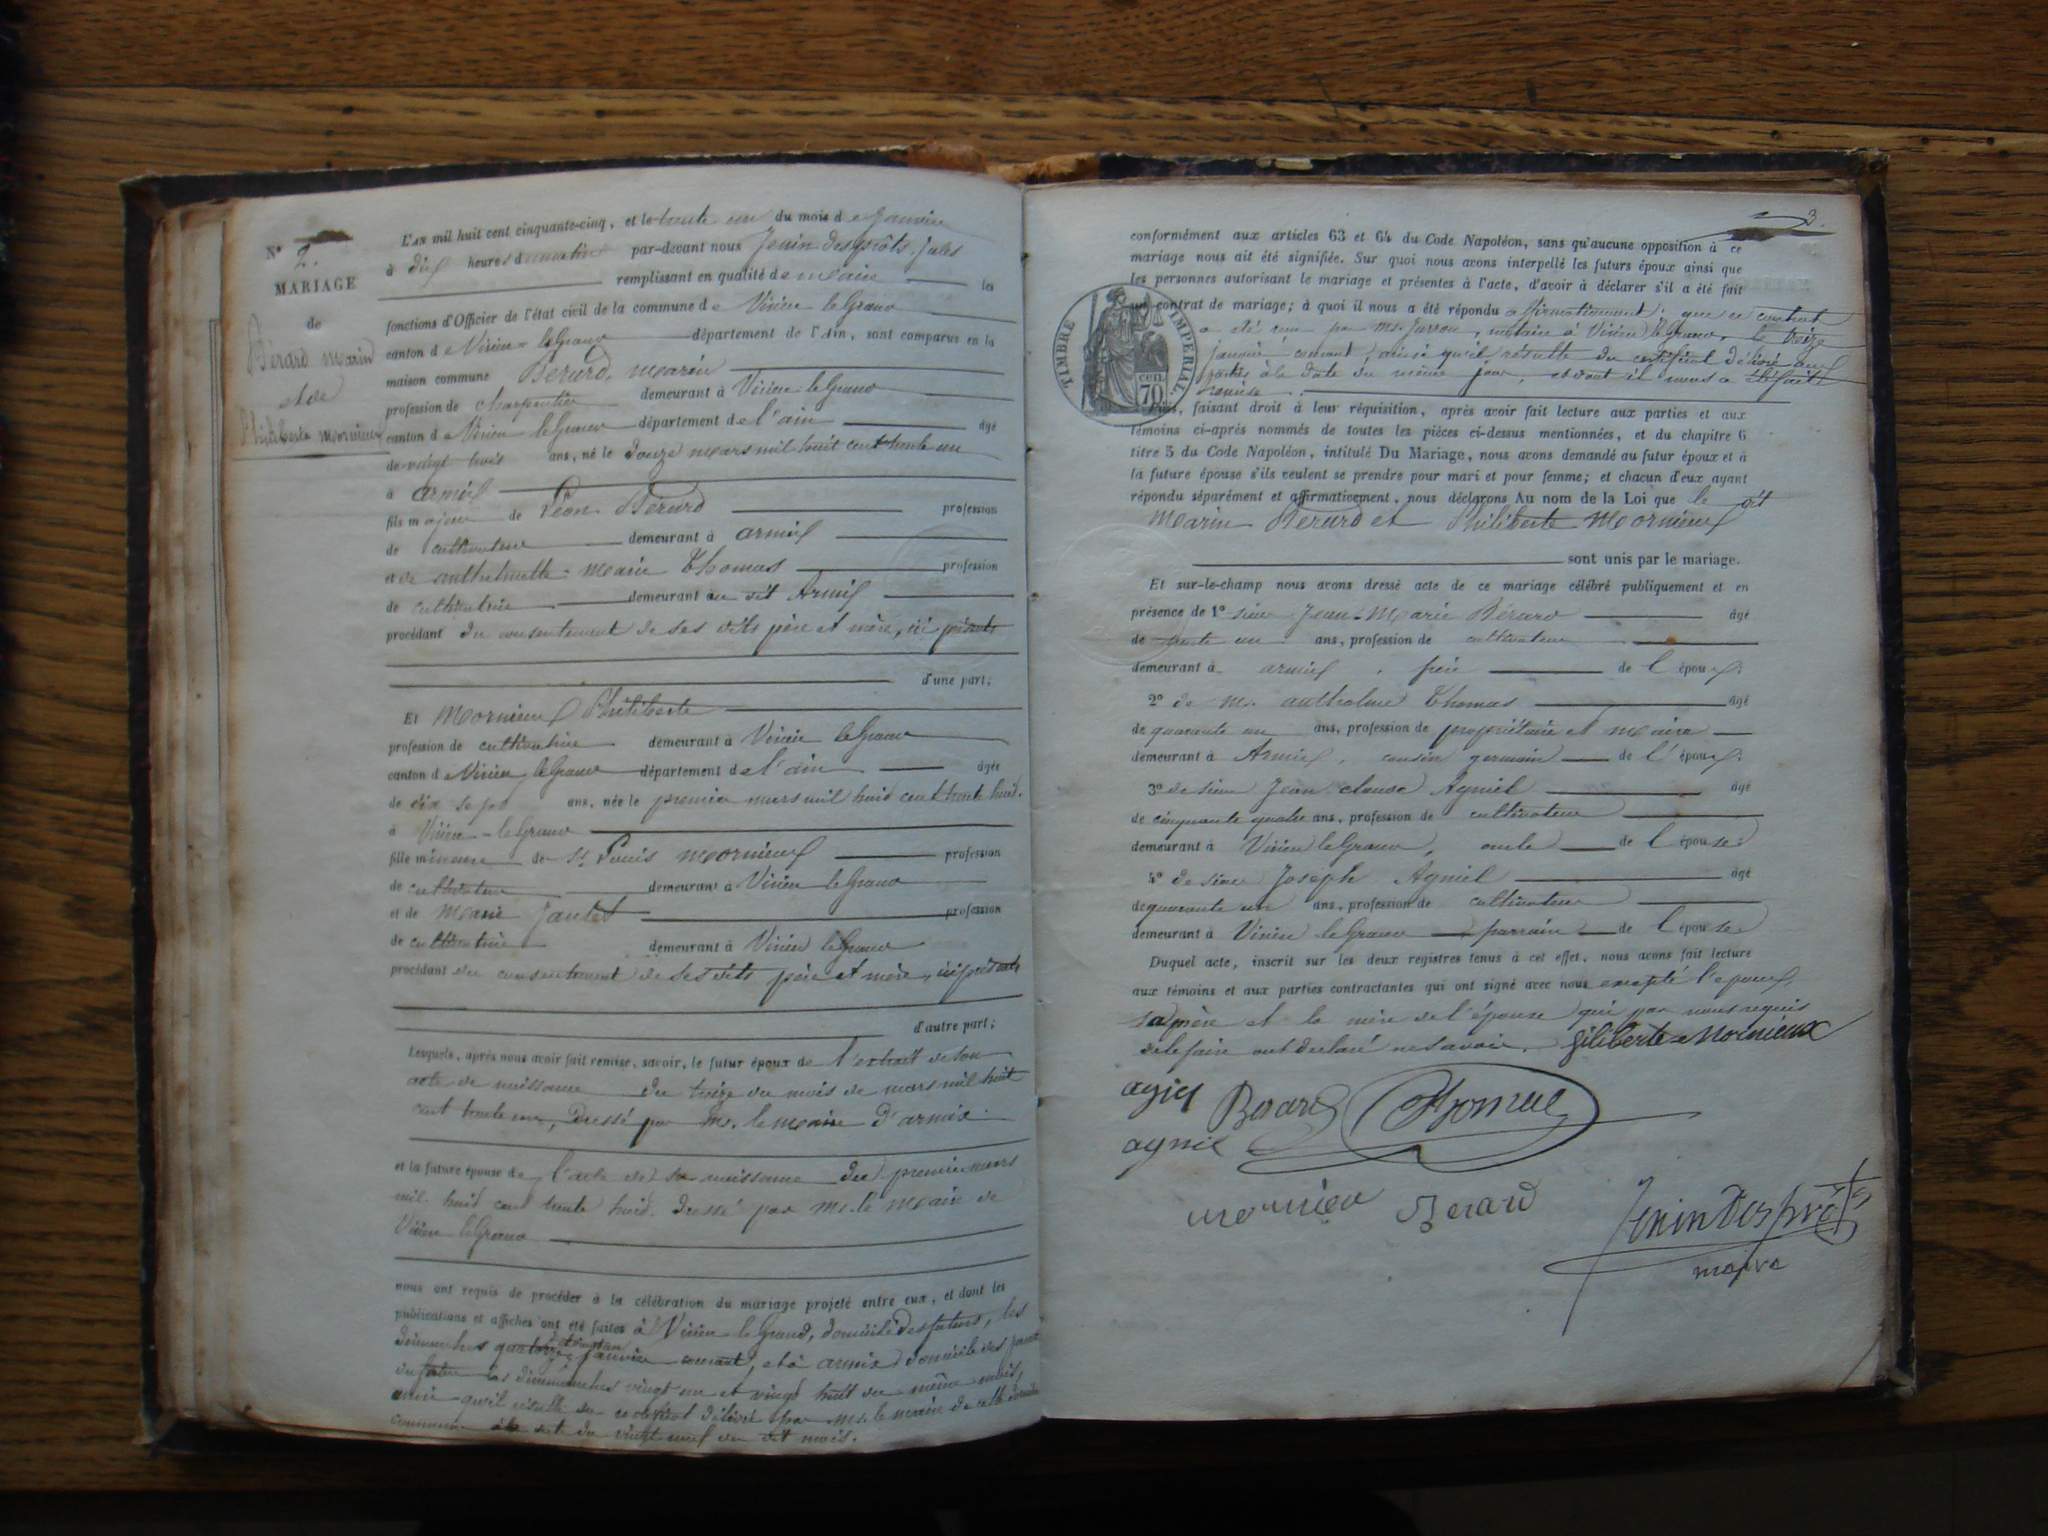 N° 2.
MARIAGE
de
Bérard Marin
et de
Philiberte Mornieux
L'AN mil huit cent cinquante-cinq, et le trente un du mois de Janvier
à dix heures du matin par-devant nous Jenin Desprôts, Jules
remplissant en qualité de Maire les
fonctions d'Officier de l'état civil de la commune de Virieu le Grand
canton de Virieu-le Grand département de l'Ain, sont comparus en la
maison commune Berard, Marin
profession de charpentier demeurant à Virieu-le Grand
canton de Virieu le Grand département de l'ain âgé
de vingt trois ans, né le douze mars mil huit cent trente un
à armix
fils majeur de Léon Bérard profession
de cultivateur demeurant à armix
et de anthelmette-Marie Thomas profession
de cultivatrice demeurant au dit Armix
procédant du consentement de ses dits père et mère, ici présents
d'une part;
Et Mornieux Philiberte
profession de cultivatrice demeurant à Virieu le Grand
canton de Virieu le Grand département de l'ain âgée
de dix sept ans, née le premier mars mil huit cent trente huit.
à Virieu-le Grand
fille mineure de Sr. Louis Mornieux profession
de cultivateur demeurant à Virieu le Grand
et de Marie Jantet profession
de cultivatrice demeurant à Virieu le Grand
procédant du consentement de ses dits père et mère, ici présents
d'autre part;
Lesquels, après nous avoir fait remise, savoir, le futur époux de l'extrait de son
acte de naissance du treize du mois de mars mil huit
cent trente un, dressé par Mr. le Maire d'armix.
et la future épouse de l'acte de sa naissance du premier mars
mil huit cent trente huit. dressé par Mr. le Maire de
Virieu le Grand
nous ont requis de procéder à la célébration du mariage projeté entre eux, et dont les
publications et affiches ont été faites à Virieu le Grand, domicile des futurs, les
dimanches quatorze et vingt un janvier courant, et à armix domicile des parents
du futur les dimanches vingt un et vingt huit du même mois,
ainsi qu'il résulte du certificat délivré par Mr. le maire de cette dernière
commune à la date du vingt neuf du dit mois.
3.
conformément aux articles 63 et 64 du Code Napoléon, sans qu'aucune opposition à ce
mariage nous ait été signifiée. Sur quoi nous avons interpellé les futurs époux ainsi que
les personnes autorisant le mariage et présentes à l'acte, d'avoir à déclarer s'il a été fait
un contrat de mariage; à quoi il nous a été répondu affirmativement; que ce contrat
a été reçu par Me. Jarron, notaire à Virieu le Grand, le treize
janvier courant, ainsi qu'il résulte du certificat délivré aux
parties à la date du même jour, et dont il nous a été fait
remise.
TIMBRE IMPERIAL
70 cen.
Puis, faisant droit à leur réquisition, après avoir fait lecture aux parties et aux
témoins ci-après nommés de toutes les pièces ci-dessus mentionnées, et du chapitre 6
titre 5 du Code Napoléon, intitulé Du Mariage, nous avons demandé au futur époux et à
la future épouse s'ils veulent se prendre pour mari et pour femme; et chacun d'eux ayant
répondu séparément et affirmativement, nous déclarons Au nom de la Loi que le dit
Marin Bérard et Philiberte Mornieux
sont unis par le mariage.
Et sur-le-champ nous avons dressé acte de ce mariage célébré publiquement et en
présence de 1° sieur Jean-Marie Bérard âgé
de trente un ans, profession de cultivateur
demeurant à armix, frère de l'époux;
2° de Mr. anthelme Thomas âgé
de quarante un ans, profession de propriétaire et Maire
demeurant à Armix, cousin germain de l'époux;
3° de sieur Jean claude Agniel âgé
de cinquante quatre ans, profession de cultivateur
demeurant à Virieu le Grand, oncle de l'épouse
4° de sieur Joseph Agniel âgé
de quarante un ans, profession de cultivateur
demeurant à Virieu le Grand parrain de l'épouse
Duquel acte, inscrit sur les deux registres tenus à cet effet, nous avons fait lecture
aux témoins et aux parties contractantes qui ont signé avec nous excepté l'époux,
sa mère et la mère de l'épouse qui par nous requis
de le faire ont déclaré ne savoir. filiberte Mornieux
agniel Berard Thomas
agniel
mornieu Berard Jenin Desprôts
maire